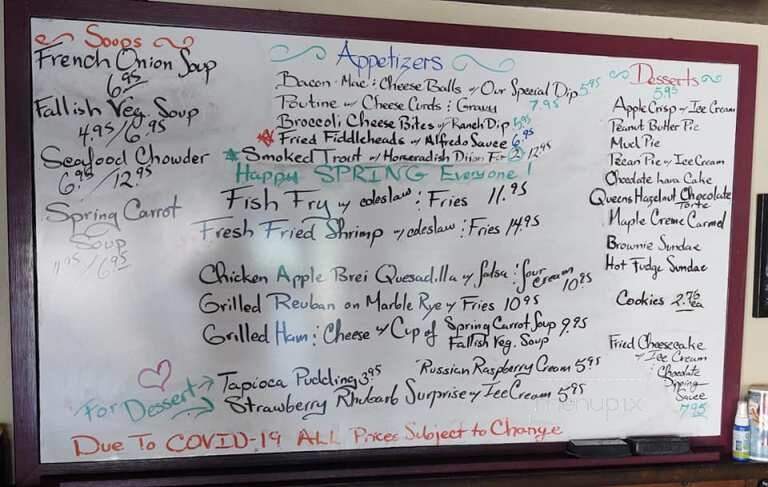 Soops
French Onion Soup
6.95
Fallish Veg. Soup
4.95/6.95
Seafood Chowder
6.95/12.95
Spring Carrot
Soup
4.95/6.95
Appetizers
Bacon Mac & Cheese Balls w/ Our Special Dip 5.95
Poutine w/ Cheese Curds & Gravy 7.95
Broccoli Cheese Bites w/ Ranch Dip 5.95
Fried Fiddleheads w/ Alfredo Sauce 6.95
Smoked Trout w/ Horseradish Dijon For 2 12.95
Happy SPRING Everyone!
Fish Fry w/ coleslaw & Fries 11.95
Fresh Fried Shrimp w/ coleslaw & Fries 14.95
Chicken Apple Brei Quesadilla w/ Salsa & Sour cream 10.95
Grilled Reuban on Marble Rye w/ Fries 10.95
Grilled Ham & Cheese w/ Cup of Spring Carrot Soup 9.95
Fallish Veg. Soup
For Dessert
Tapioca Pudding 3.95
Russian Raspberry Cream 5.95
Strawberry Rhubarb Surprise w/ Ice Cream 5.95
Due To COVID-19 ALL Prices Subject to Change
Desserts
5.95
Apple Crisp w/ Ice Cream
Peanut Butter Pie
Mud Pie
Pecan Pie w/ Ice Cream
Chocolate Lava Cake
Queens Hazelnut Chocolate
Torte
Maple Creme Carmel
Brownie Sundae
Hot Fudge Sundae
Cookies 2.75
ea
Fried Cheesecake
w/ Ice Cream
& Chocolate
Sauce
7.95
menupix